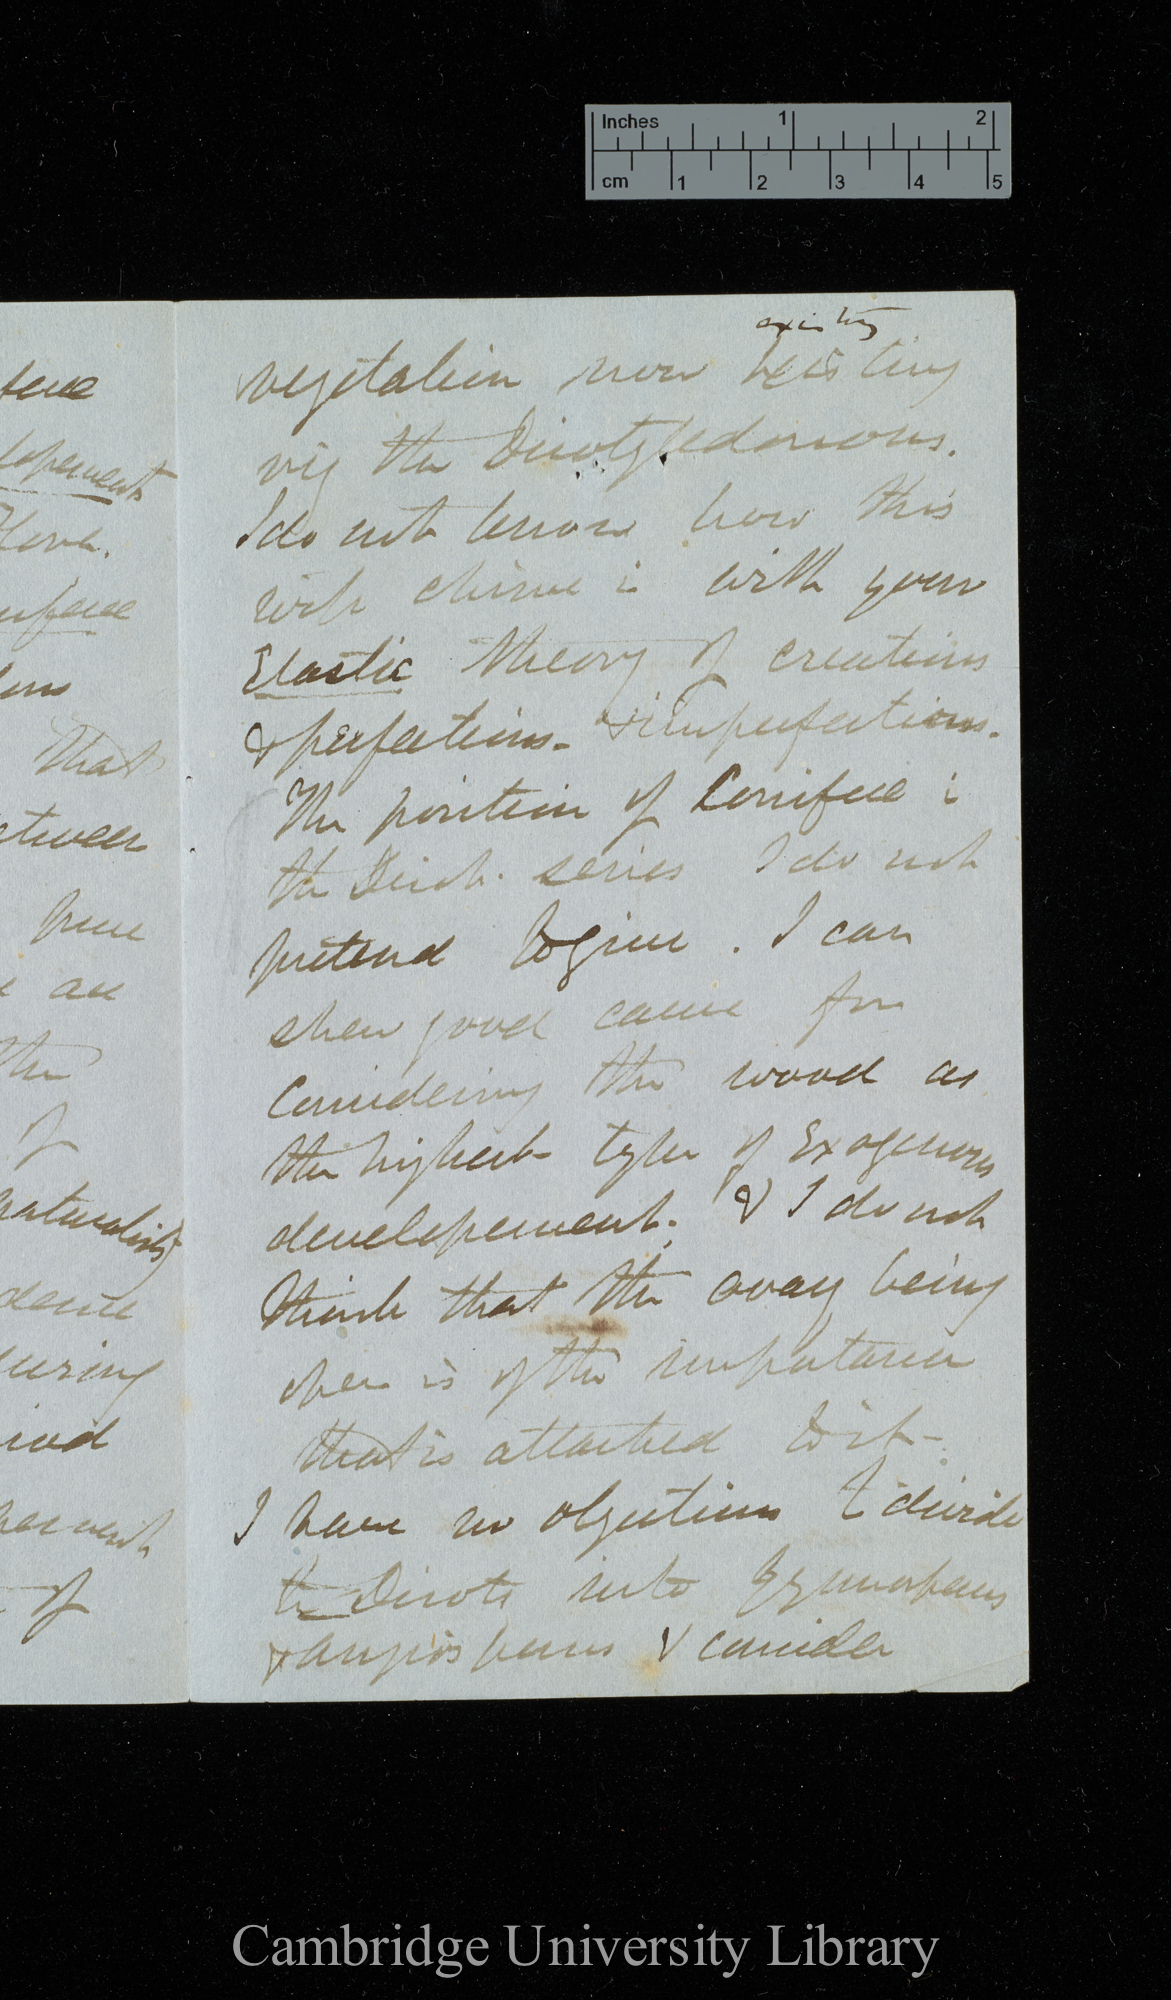 Inches 1 2
cm 1 2 3 4 5
existing
vegetation now existing
viz the Dicotyledonous.
I do not know how this
will chime i with your
Elastic theory of creations
& perfections. & imperfections.
The position of Coniferæ i
the Dicot. series I do not
pretend to give. I can
shew good cause for
Considering the wood as
the highest type of Exogenous
developement. & I do not
think that the ovary being
open is of the importance
that is attached to it-
I have no objections to divide
the Dicots into Gymnosperms
& angiosperms & consider
feræ
lopement
flora.
niferæ
that
etween
have
an
the
of
naturalists)
dence
during
riod
of
Cambridge University Library